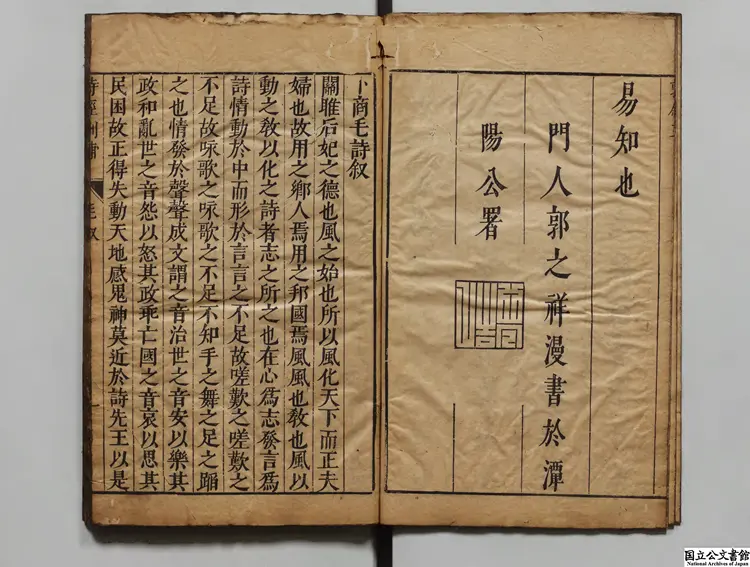 易知也
門人郭之祥漫書於潭
陽公署
卜商毛詩叙
關雎后妃之德也風之始也所以風化天下而正夫
婦也故用之鄉人焉用之邦國焉風風也敎也風以
動之敎以化之詩者志之所之也在心爲志發言爲
詩情動於中而形於言言之不足故嗟歎之嗟歎之
不足故咏歌之咏歌之不足不知手之舞之足之蹈
之也情發於聲聲成文謂之音治世之音安以樂其
政和亂世之音怨以怒其政乖亡國之音哀以思其
民困故正得失動天地感鬼神莫近於詩先王以是
国立公文書館
National Archives of Japan